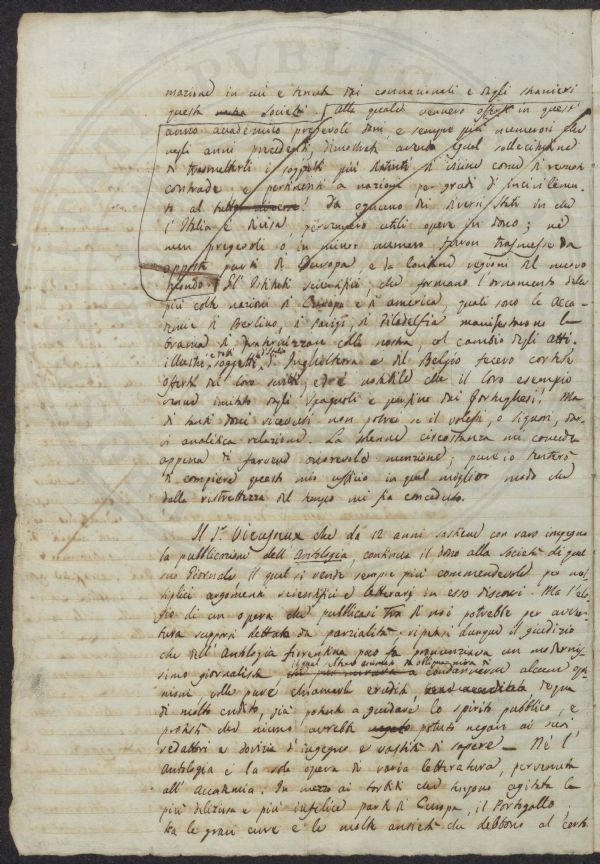 mazione in cui è tenuta dai connazionali e dagli stranieri
questa nostra Società. Alla quale vennero offerti in quest'
anno accademico pregevoli doni, e sempre più numerosi che
negli anni precedenti, dimostrata avendo egual sollecitudine
di trasmetterli i soggetti più distinti di vicine come di remote
contrade, e pertinenti a nazioni per gradi di incivilimen-
to al tutto diverse! Da ognuno dei diversi stati in che
l'Italia è divisa, pervennero utili opere in dono; nè
men pregevoli o in minor numero furon trasmesse da
opposte parti di Europa, e da lontane regioni del nuovo
mondo. Gl'Istituti scientifici, che formano l'ornamento delle
più colte nazioni di Europa e di America, quali sono le Acca-
demie di Berlino, di Parigi, di Filadelfia manifestarono la
brama di fraternizzare colla nostra, col cambio degli atti.
illustri e dotti soggetti d'Inghilterra e del Belgio fecero cortese
offerta dei loro scritti, ed è notabile che il loro esempio
venne imitato dagli Spagnoli e perfino dai Portoghesi! Ma
di tanti doni ricevuti non potrei se il volessi, o signori, dar-
vi analitica relazione. La solenne circostanza mi concede
appena di farvene onorevole menzione; pure io tenterò
di compiere questo mio ufficio in quel miglior modo che
dalla ristrettezza del tempo mi sia conceduto.
Il Sr. Vieusseux che da 12 anni sostiene con raro impegno
la pubblicazione dell'Antologia, continua il dono alla Società di quel
suo Giornale, il quale si rende sempre più commendevole per mol-
tiplici argomenti scientifici e letterarj in esso discussi. Ma l'elo-
gio di un opera che pubblicasi tra di noi potrebbe per avven-
tura supporsi dettato da parzialità: ripetasi dunque il giudizio
che dell'Antologia fiorentina poco fa pronunziava un modernis-
simo giornalista, il quale
che pur mirava a condannarne alcune opi-
nioni volle pure chiamarla erudita, degna
di molto credito, già potente a guidare lo spirito pubblico, e
protestò che niuno avrebbe potuto negare ai suoi
redattori e dovizia d'ingegno e vastità di sapere — Nè l'
Antologia è la sola opera di varia letteratura, pervenuta
all'Accademia: In mezzo ai torbidi che tengono agitata la
più deliziosa e più infelice parte di Europa, il Portogallo,
tra le gravi cure e le molte ansietà che debbono al certo